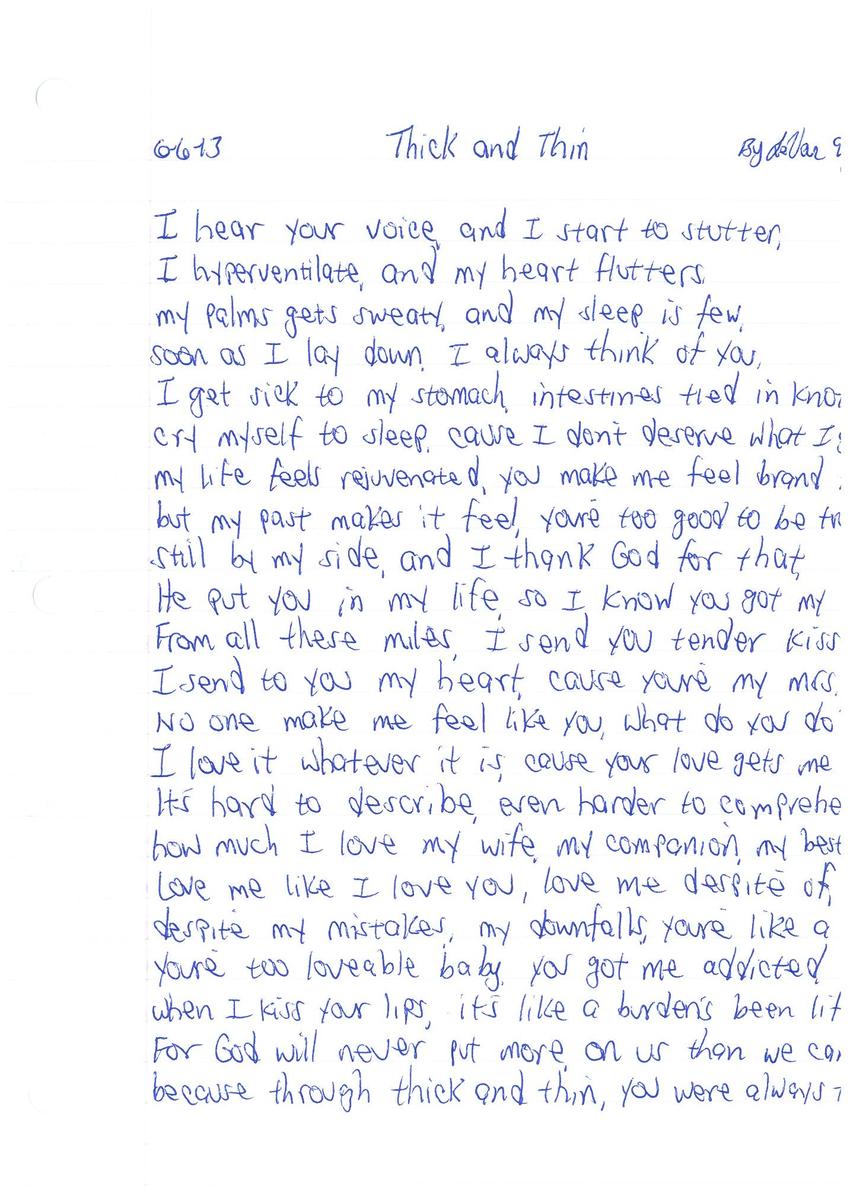 6613 Thick and Thin By deVar
I hear your voice, and I start to stutter,
I hyperventilate, and my heart flutters,
my palms gets sweaty, and my sleep is few,
soon as I lay down, I always think of you,
I get sick to my stomach, intestines tied in
cry myself to sleep, cause I don't deserve what I
my life feels rejuvenated, you make me feel brand
but my past makes it feel, you're too good to be
still by my side, and I thank God for that,
He put you in my life, so I know you got my
From all these miles, I send you tender kiss
I send to you my heart, cause you're my mrs.
No one make me feel like you, what do you do
I love it whatever it is, cause your love gets me
It's hard to describe, even harder to comprehe
how much I love my wife, my companion, my best
Love me like I love you, love me despite of,
despite my mistakes, my downfalls, you're like a
you're too loveable baby, you got me addicted,
when I kiss your lips, it's like a burden's been
For God will never put more on us than we
because through thick and thin, you were always